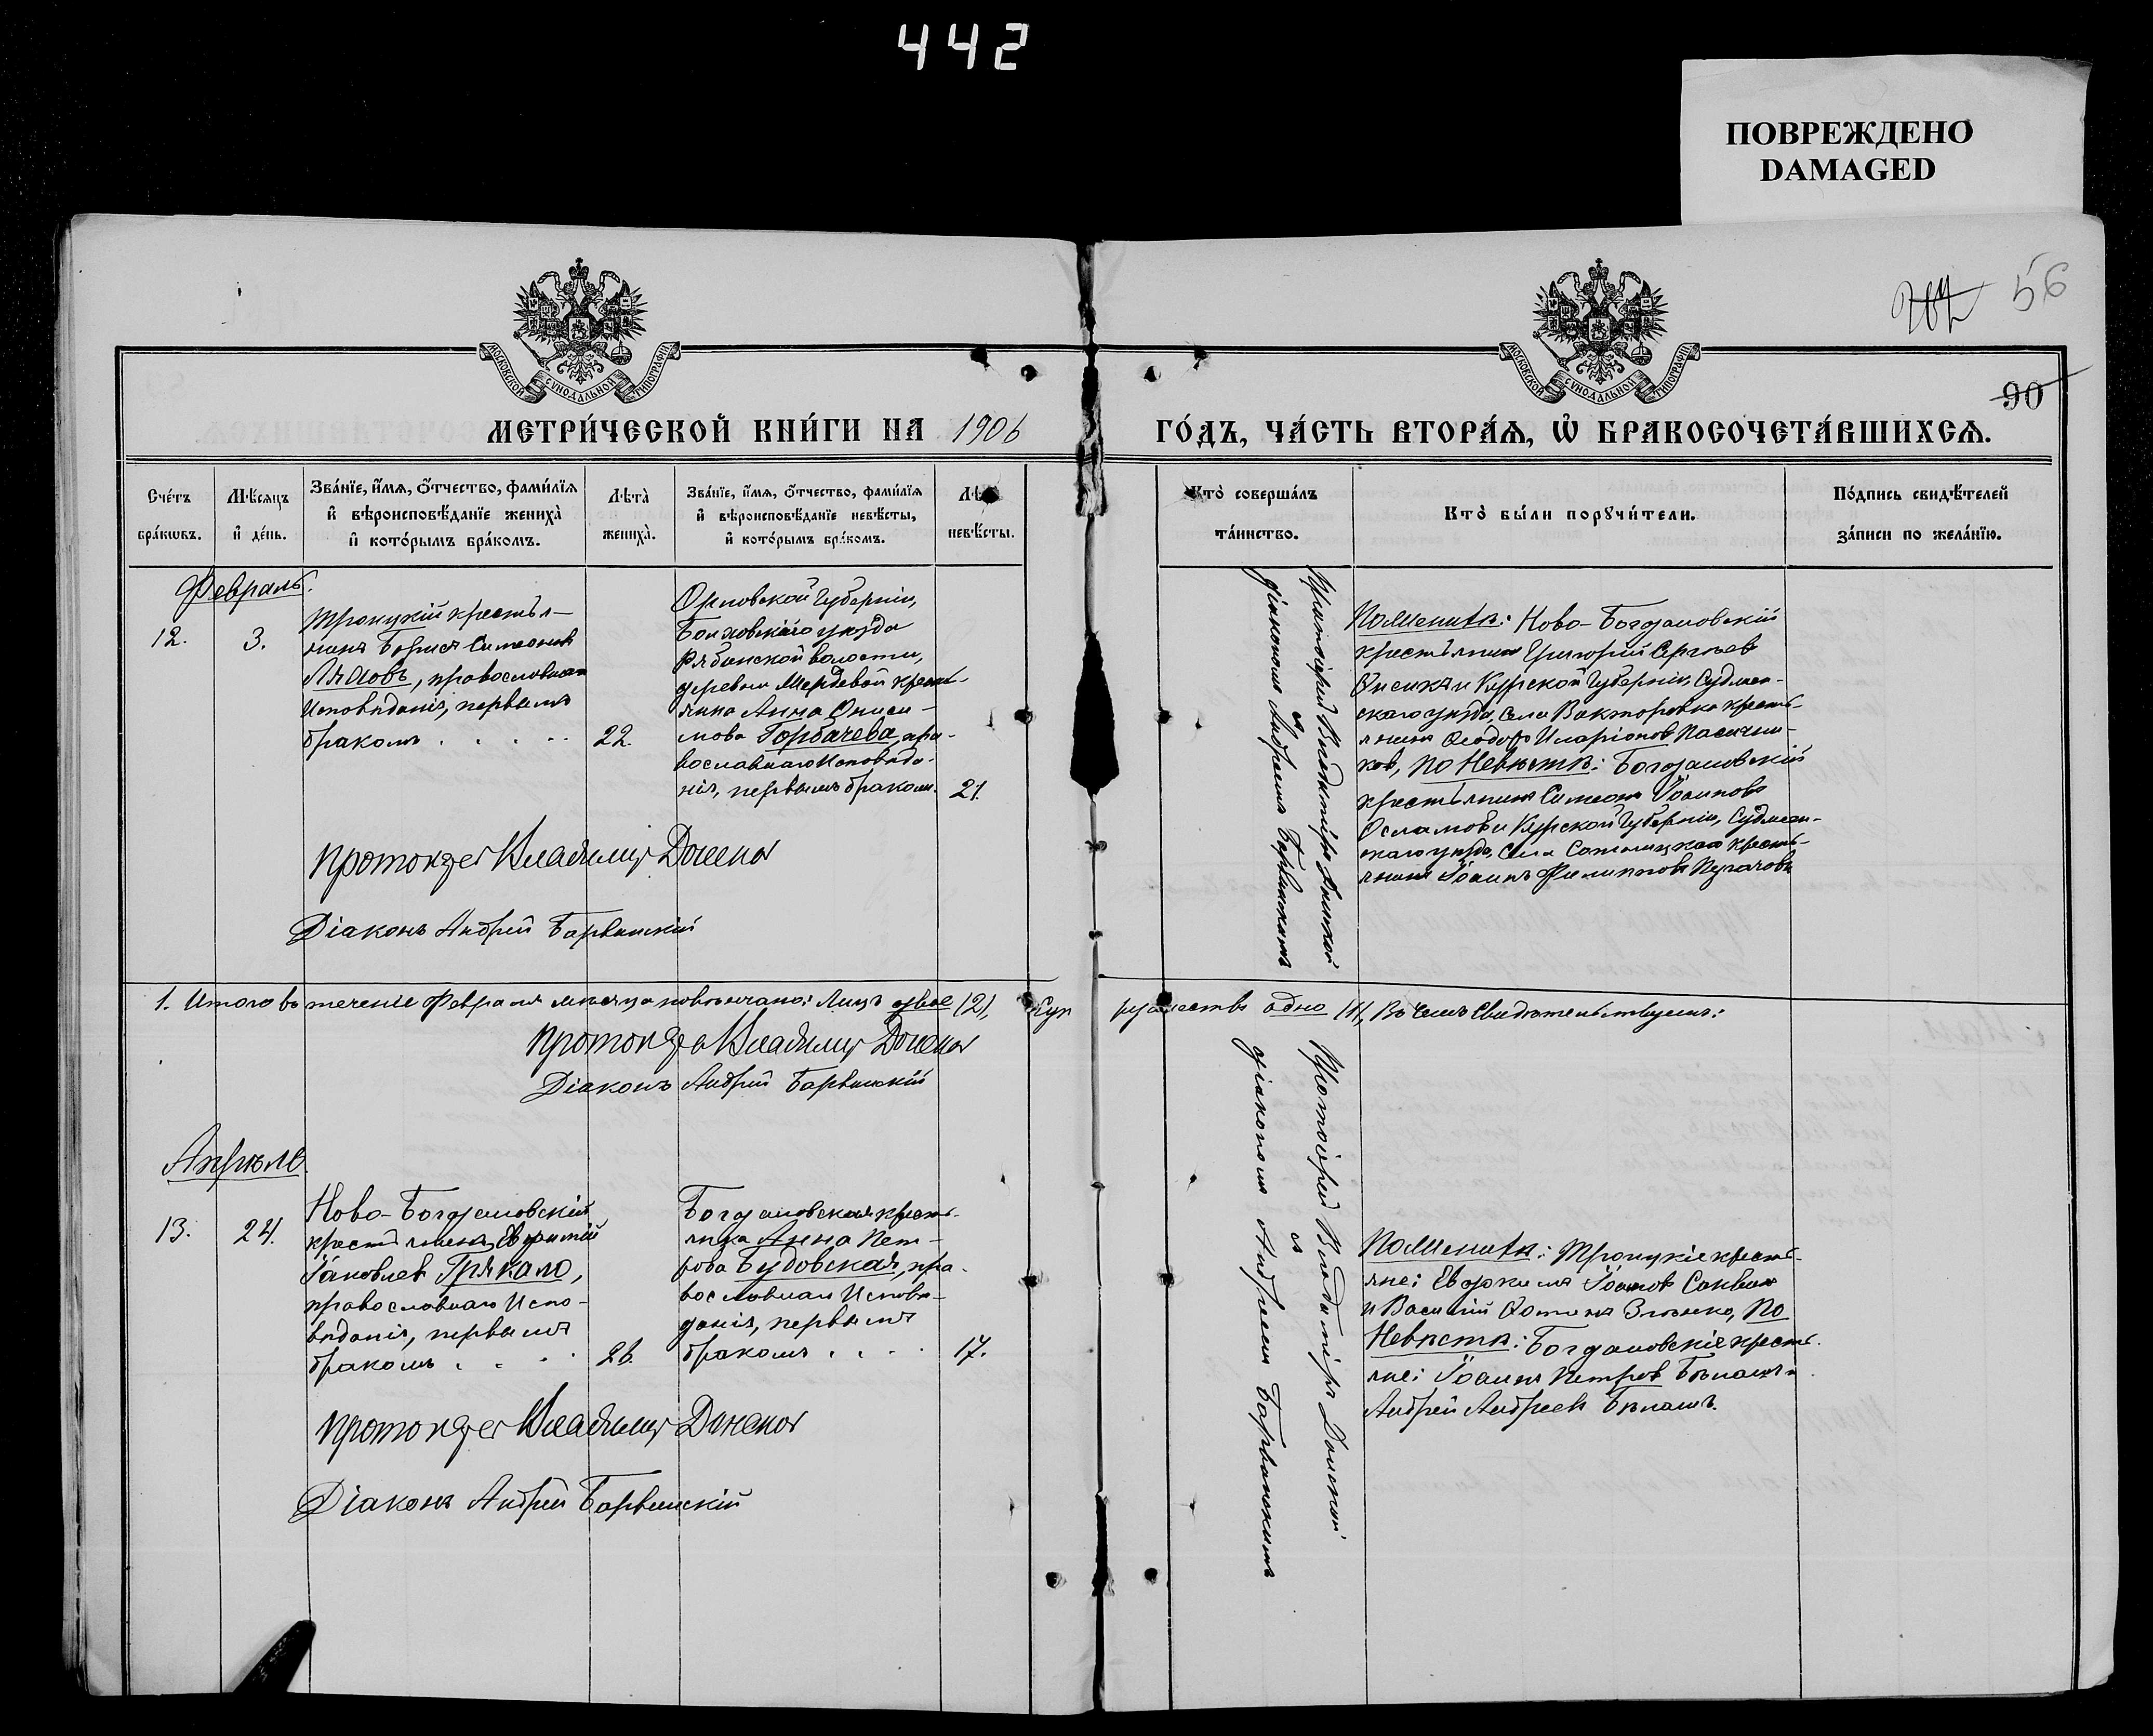 442
ПОВРЕЖДЕНО
DAMAGED
56
90
МОСКОВСКОЙ СѴНОДАЛЬНОЙ ТИПОГРАФІИ
МОСКОВСКОЙ СѴНОДАЛЬНОЙ ТИПОГРАФІИ
МЕТРИ́ЧЕСКОЙ КНИ́ГИ НА 1906
ГО́ДЪ, ЧА́СТЬ ВТОРА́Ѧ, Ѡ БРАКОСОЧЕТА́ВШИХСѦ.
Сче́тъ
бра́кѡвъ.
Мѣ́сяцъ
и҆ де́нь.
Зва́нїе, и҆́мя, ѻ҆́тчество, фами́лїя
и҆ вѣроисповѣ́данїе жениха̀
и҆ кото́рымъ бра́комъ.
Лѣта̀
жениха̀.
Зва́нїе, и҆́мя, ѻ҆́тчество, фами́лїя
и҆ вѣроисповѣ́данїе невѣ́сты,
и҆ кото́рымъ бра́комъ.
невѣ́сты.
Кто̀ соверша́лъ
та́инство.
Кто̀ бы́ли порꙋчи́тели.
По́дпись свидѣ́телей
за́писи по жела́нїю.
Февраль.
12.
3.
Троицкій крестья-
нинъ Борисъ Симеоновъ
Ляховъ, православнаго
исповѣданія, первымъ
бракомъ . . . . .
22.
Орловской Губерніи,
Болховскаго уѣзда
Рябинской волости,
деревни крестья-
нка Анна Ониси-
мова Горбачева, пра-
вославнаго исповѣда-
нія, первымъ бракомъ.
21.
Протоіерей Владиміръ Донской
и
діакономъ Андреемъ Барвинскимъ
По Женихѣ: Ново-Богдановскій
крестьянинъ Григорій Сергіевъ
и Курской Губерніи, Суджан-
скаго уѣзда, села Викторовка кресть-
янинъ Ѳеодоръ Иларіоновъ Пасечни-
ковъ, По Невѣстѣ: Богдановскій
крестьянинъ Симеонъ Іоанновъ
и Курской Губерніи, Суджан-
скаго уѣзда, села крестья-
янинъ Іоаннъ Филипповъ Пугачовъ
Протоіерей Владимір Донской
Діаконъ Андрей Барвинскій
1. Итого въ теченіе Февраля мѣсяца повѣнчано: Лицъ двое (2), Суп
ружествъ одно (1), Въ чемъ Свидѣтельствуемъ:
Протоіерей Владимір Донской
Діаконъ Андрей Барвинскій
Апрѣль.
13.
24.
Ново-Богдановскій
крестьянинъ Евфимій
Іаковлев Грякало,
православнаго Испо-
вѣданія, первымъ
бракомъ . . . .
26.
Богдановская кресть-
янка Анна Пет-
рова Будовская, пра-
вославнаго Исповѣ-
данія, первымъ
бракомъ . . . .
17.
Протоіерей Владиміръ Донской
и
діакономъ Андреемъ Барвинскимъ
По Женихѣ: Троицкіе кресть-
яне: Евдокимъ Іоанов
и Василій Зленко, По
Невѣстѣ: Богдановскіе кресть-
яне: Іоаннъ Петров Бѣлашъ и
Андрей Андреевъ Бѣлашъ.
Протоіерей Владимір Донской
Діаконъ Андрей Барвинскій